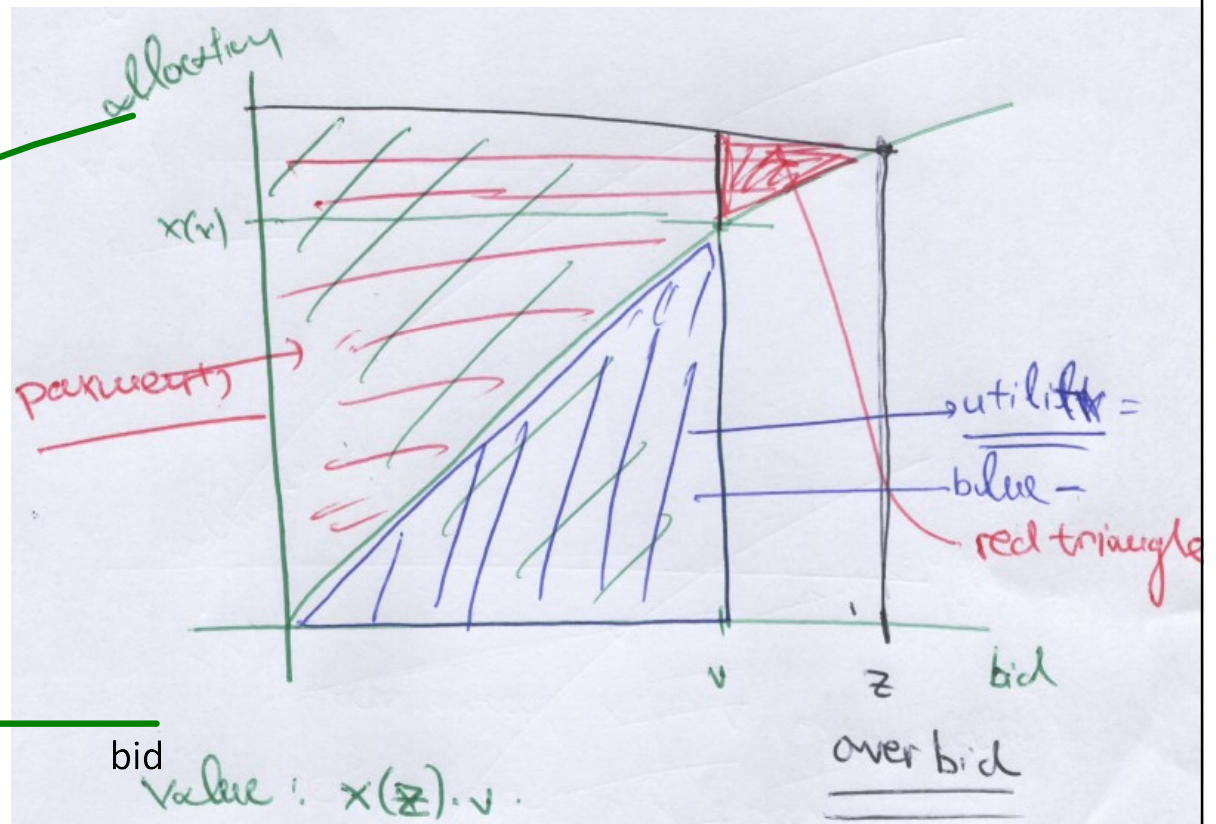 allocation
x(v)
payments
utility =
blue -
red triangle
v
z
bid
over bid
bid
value: x(z).v.